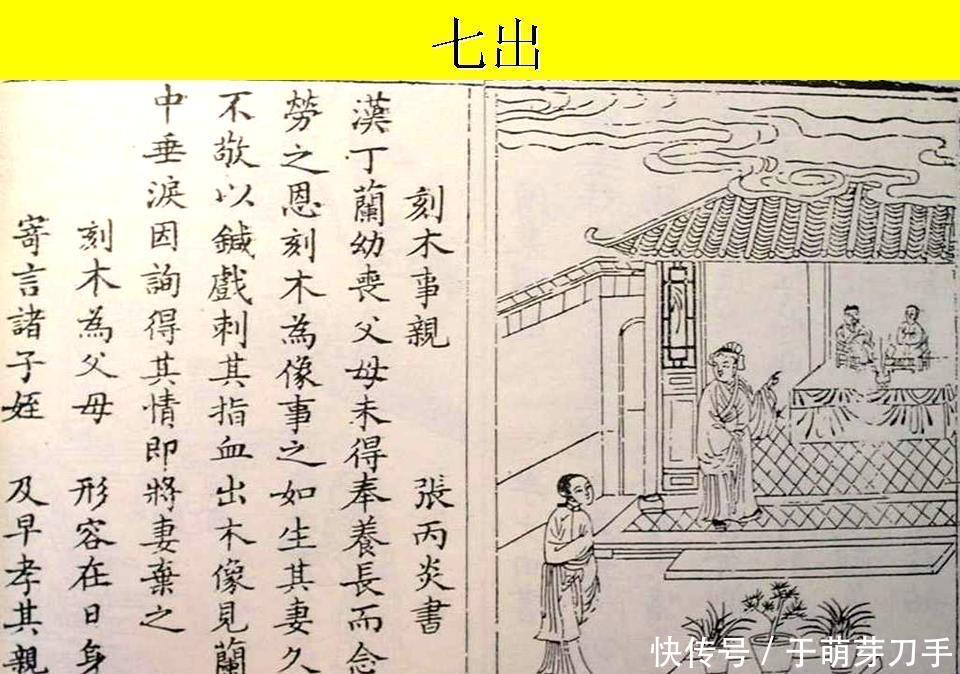 七出
刻木事親 張丙炎書
漢丁蘭幼喪父母未得奉養長而念
勞之恩刻木為像事之如生其妻久
不敬以鍼戲刺其指血出木像見蘭
中垂淚因詢得其情即將妻棄之
刻木為父母 形容在日身
寄言諸子姪 及早孝其親
快传号/于萌芽刀手